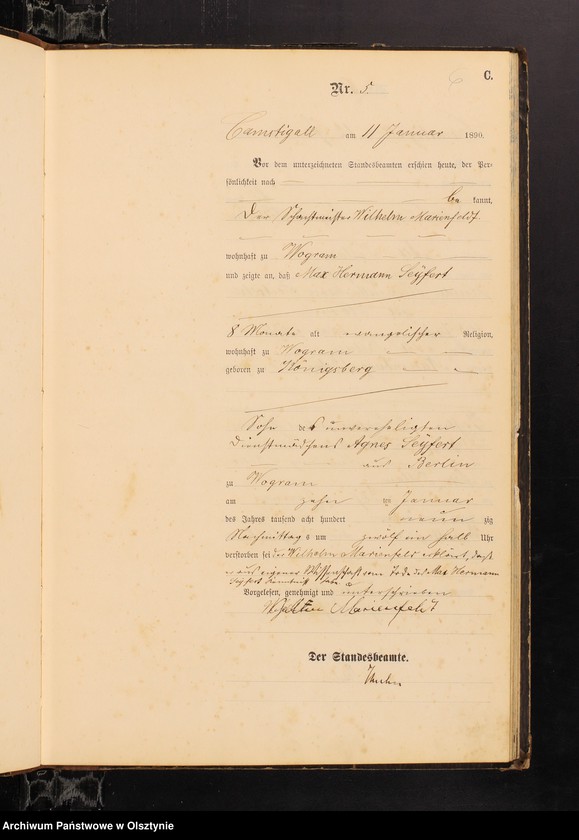 C.
Nr. 5.
Camstigall am 11 Januar 1890.
Vor dem unterzeichneten Standesbeamten erschien heute, der Per-
sönlichkeit nach
be kannt,
Der Schachtmeister Wilhelm Marienfeldt
wohnhaft zu Wogram
und zeigte an, daß Max Hermann Seÿfert
8 Monate alt evangelischer Religion,
wohnhaft zu Wogram
geboren zu Königsberg
Sohn des unverehligten
Dienstmädchens Agnes Seÿfert
aus Berlin
zu Wogram
am zehn ten Januar
des Jahres tausend acht hundert neun zig
Nachmittags um zwölf ein halb Uhr
verstorben sei der Wilhelm Marienfeld erklärt, daß
er aus eigener Wissenschaft vom Tode des Max Hermann
Seÿfert Kenntniß habe
Vorgelesen, genehmigt und unterschrieben
Marienfeldt
Der Standesbeamte.
Archiwum Państwowe w Olsztynie